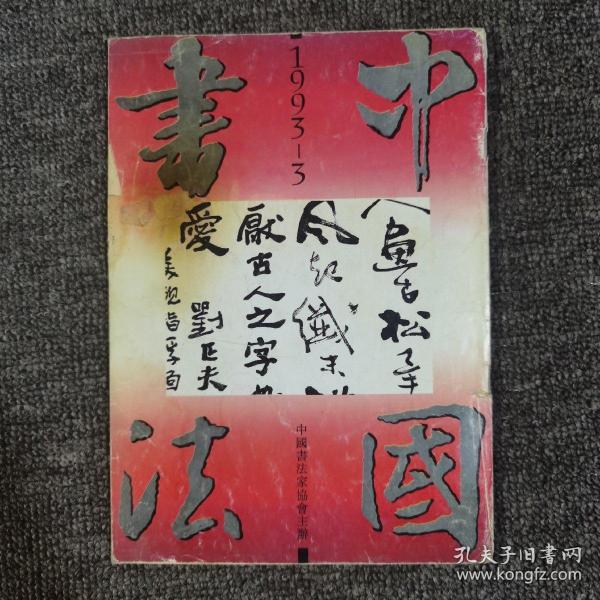 中國
書法
1993-3
人畫古松
風起纖末
厭古人之字
愛
劉正夫
中國書法家協會主辦
孔夫子旧书网
www.kongfz.com